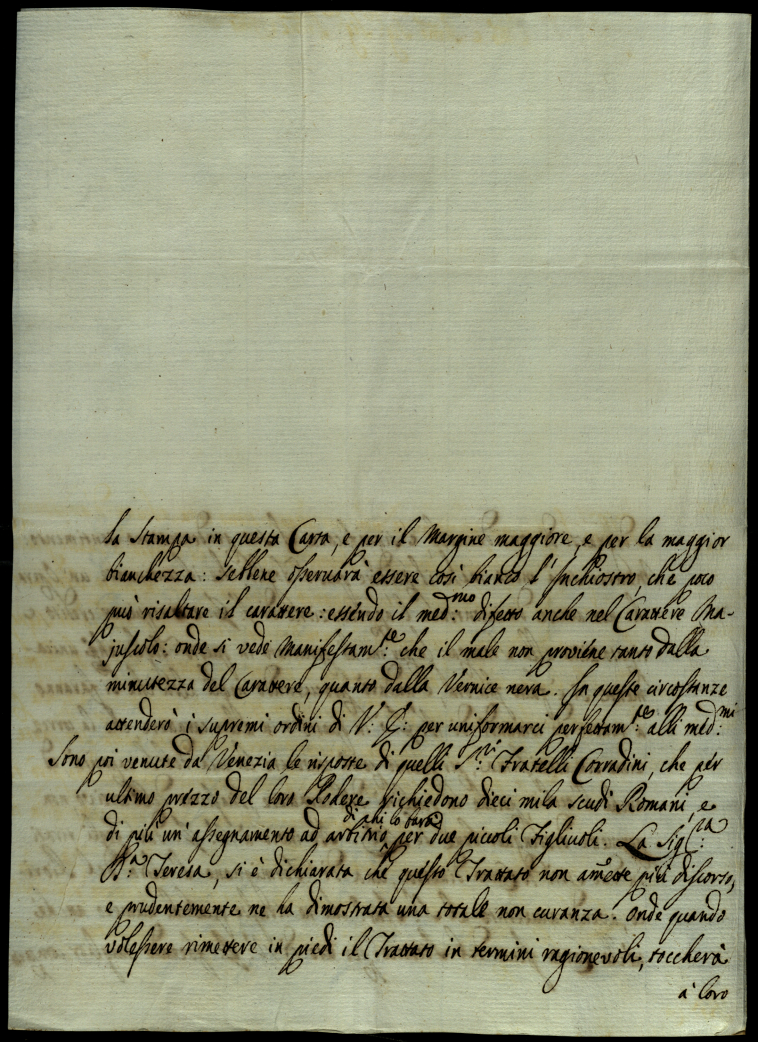 la Stampa in questa Carta, e per il Margine maggiore, e per la maggior
bianchezza: sebbene osservarà essere così bianco l'Inchiostro, che poco
può risaltare il carattere: essendo il med:mo difetto anche nel Carattere Ma-
juscolo: onde si vede manifestam:te che il male non proviene tanto dalla
minutezza del Carattere, quanto dalla Vernice nera. In queste circostanze
attenderò i supremi ordini di V: E: per uniformarci perfettam:te alli med:mi
Sono poi venute da Venezia le risposte di quelli S:ri Fratelli Corradini, che per
ultimo prezzo del loro Podere richiedono dieci mila scudi Romani, e
di più un' assegnamento ad arbitrio di chi lo farà per due piccoli Figliuoli. La Sig:ra
B:a Teresa, si è dichiarata che questo Trattato non amette più discorso,
e prudentemente ne ha dimostrata una totale non curanza. Onde quando
volessere rimettere in piedi il Trattato in termini ragionevoli, toccherà
à loro